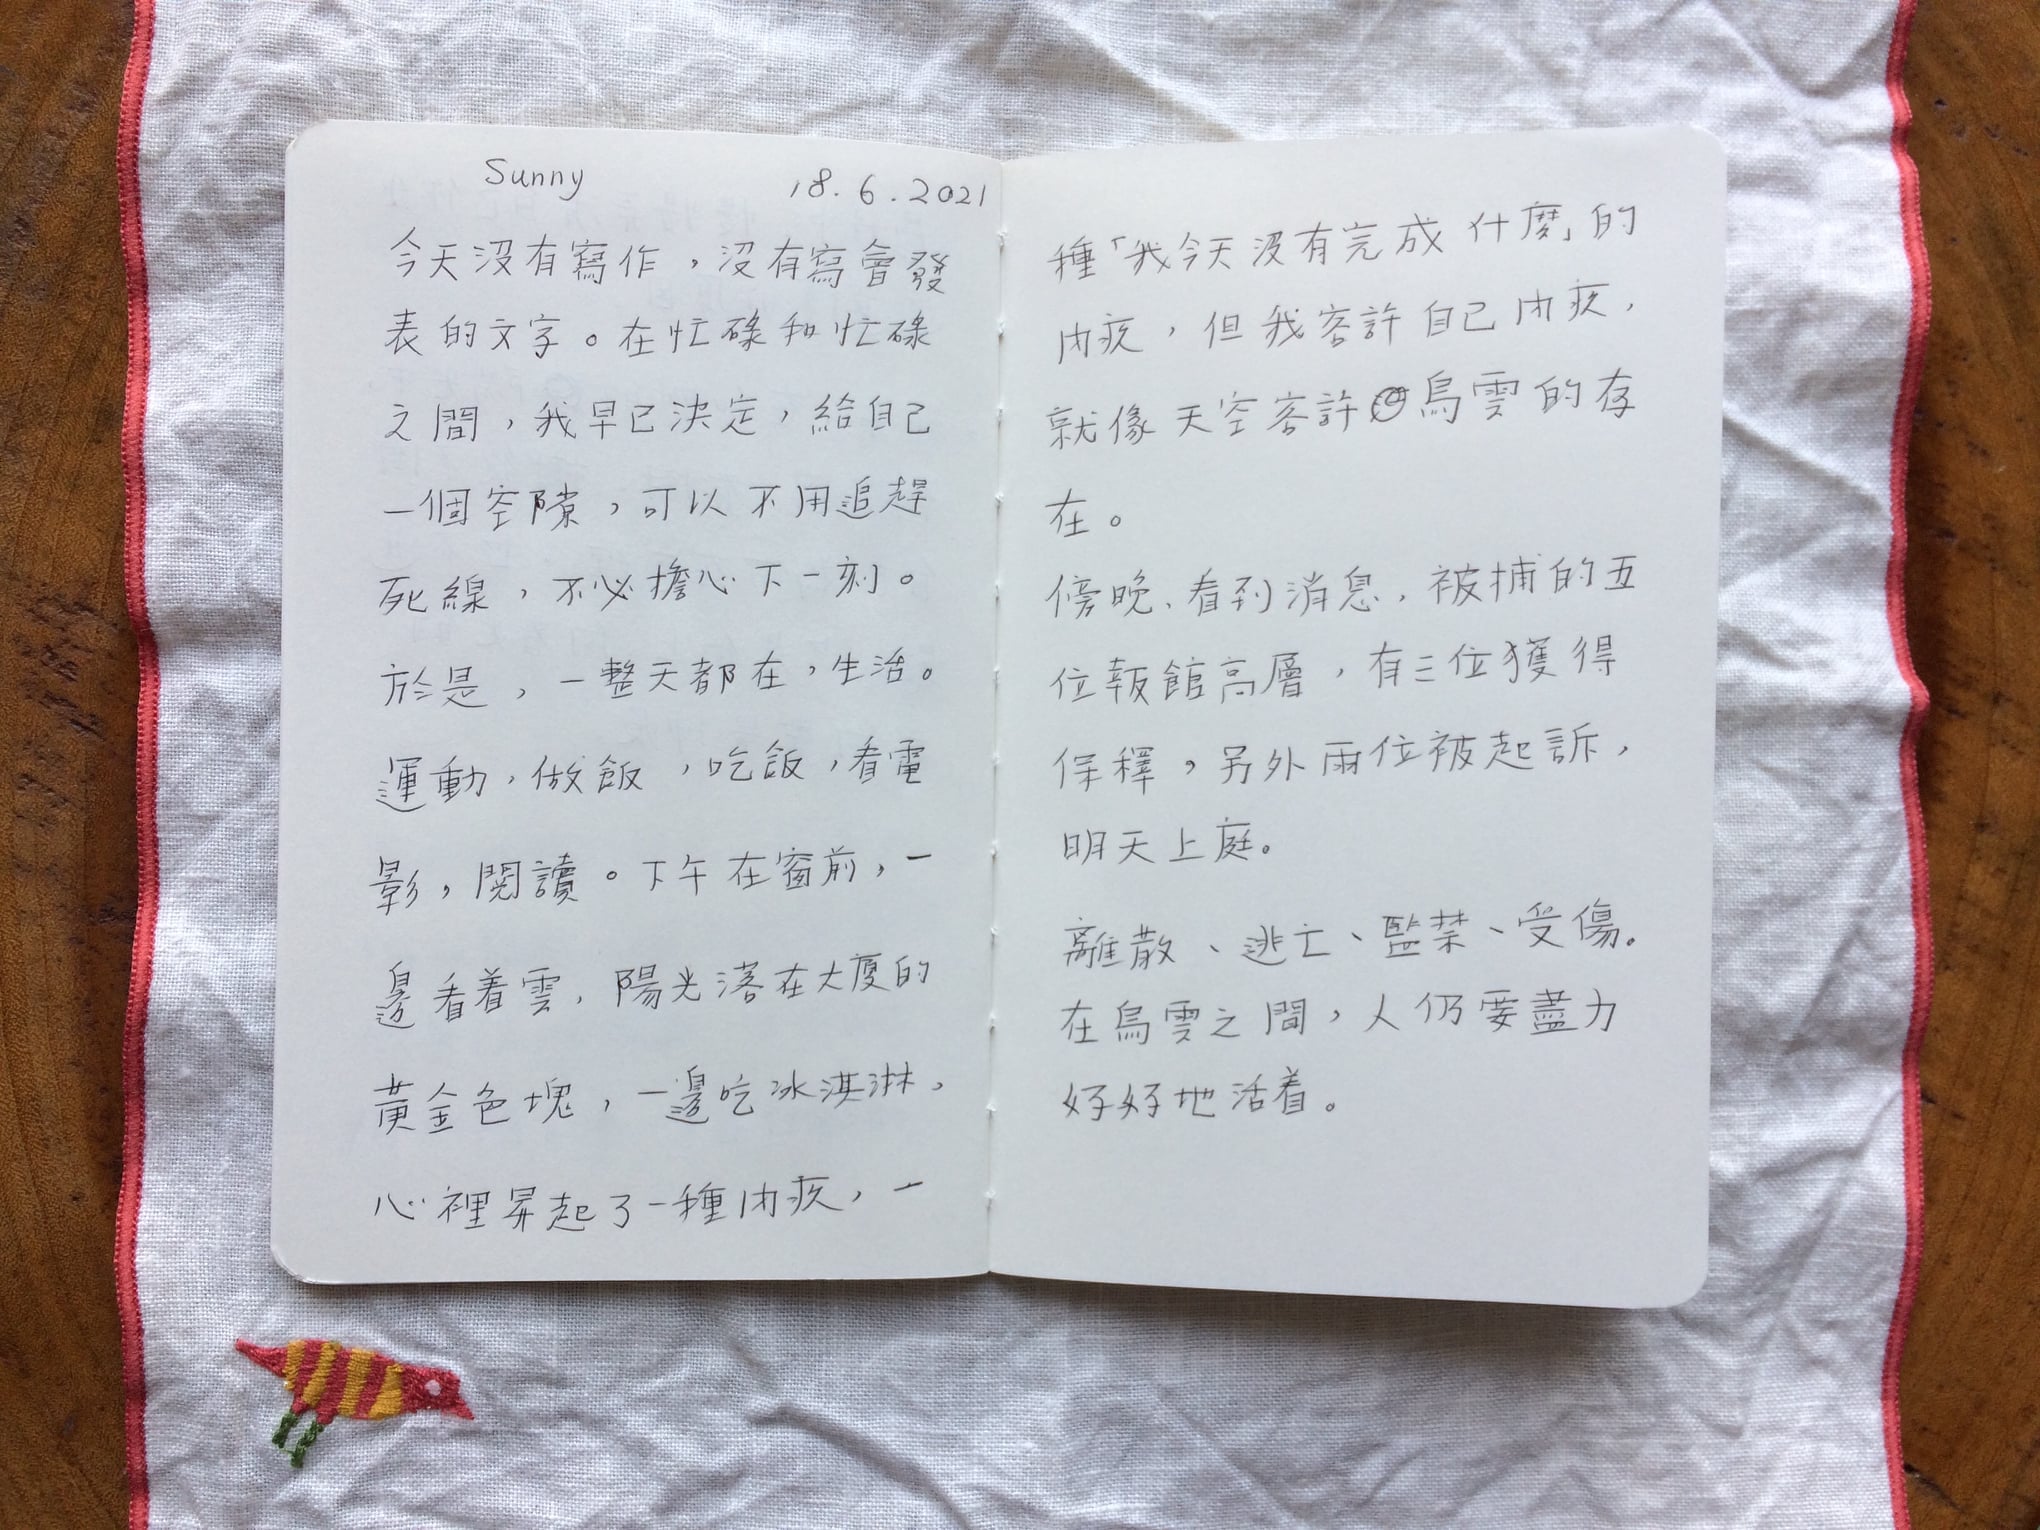 Sunny 18.6.2021
今天沒有寫作，沒有寫會發
表的文字。在忙碌和忙碌
之間，我早已決定，給自己
一個空隙，可以不用追趕
死線，不必擔心下一刻。
於是，一整天都在，生活。
運動，做飯，吃飯，看電
影，閱讀。下午在窗前，一
邊看着雲，陽光落在大廈的
黃金色塊，一邊吃冰淇淋，
心裡昇起了一種內疚，一
種「我今天沒有完成什麼」的
內疚，但我容許自己內疚，
就像天空容許烏雲的存
在。
傍晚、看到消息，被捕的五
位報館高層，有三位獲得
保釋，另外兩位被起訴，
明天上庭。
離散、逃亡、監禁、受傷。
在烏雲之間，人仍要盡力
好好地活着。